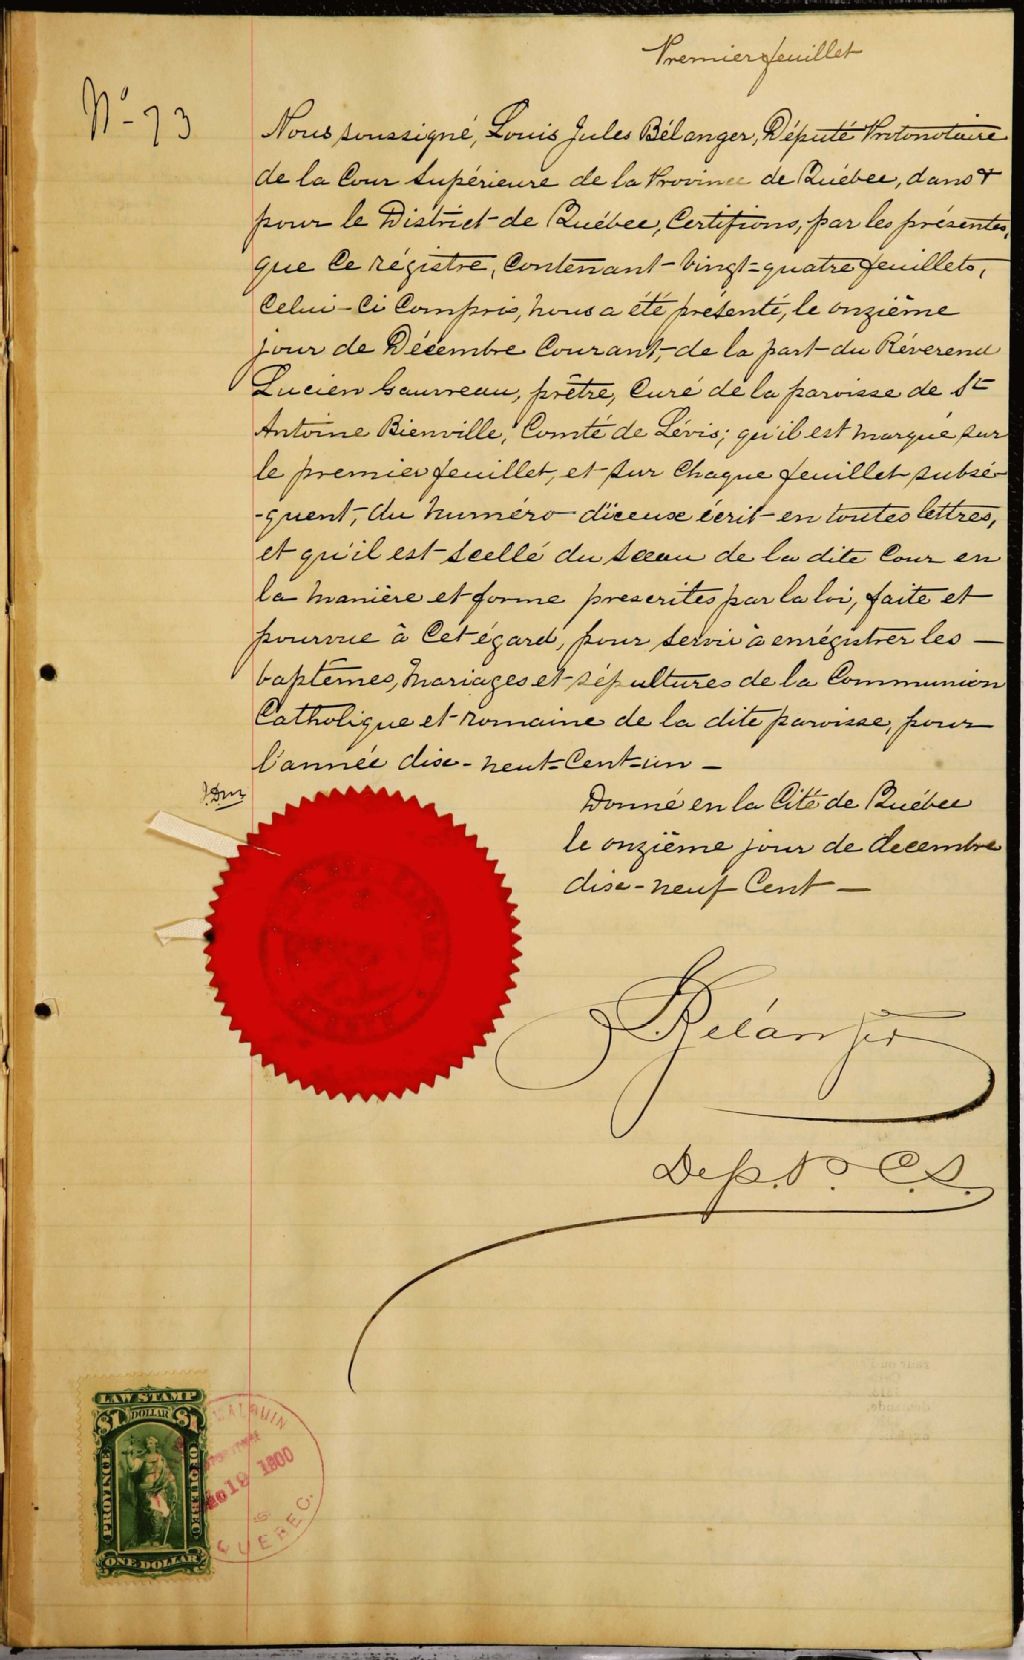 Premier feuillet
No - 73
Nous soussigné, Louis Jules Bélanger, Député Protonotaire
de la Cour Supérieure de la Province de Québec, dans &
pour le District de Québec, Certifions, par les présentes,
que ce régistre, contenant vingt=quatre feuillets,
celui-ci compris, nous a été présenté, le onzième
jour de Décembre courant, de la part du Réverend
Lucien Gauvreau, prêtre, Curé de la paroisse de St
Antoine Bienville, Comté de Lévis; qu'il est marqué sur
le premier feuillet, et sur chaque feuillet subsé-
-quent, du numéro d'iceux écrit en toutes lettres,
et qu'il est scellé du sceau de la dite Cour en
la manière et forme prescrites par la loi, faite et
pourvue à cet égard, pour servir à enrégistrer les —
baptêmes, mariages et sépultures de la Communion
Catholique et romaine de la dite paroisse, pour
l'année dix-neuf-Cent-un —
Donné en la Cité de Québec
le onzième jour de decembre
dix-neuf Cent —
Bélanger
Dep. P. C. S.
LAW STAMP
$1 DOLLAR $1
PROVINCE OF QUEBEC
ONE DOLLAR
19 1900
QUEBEC.